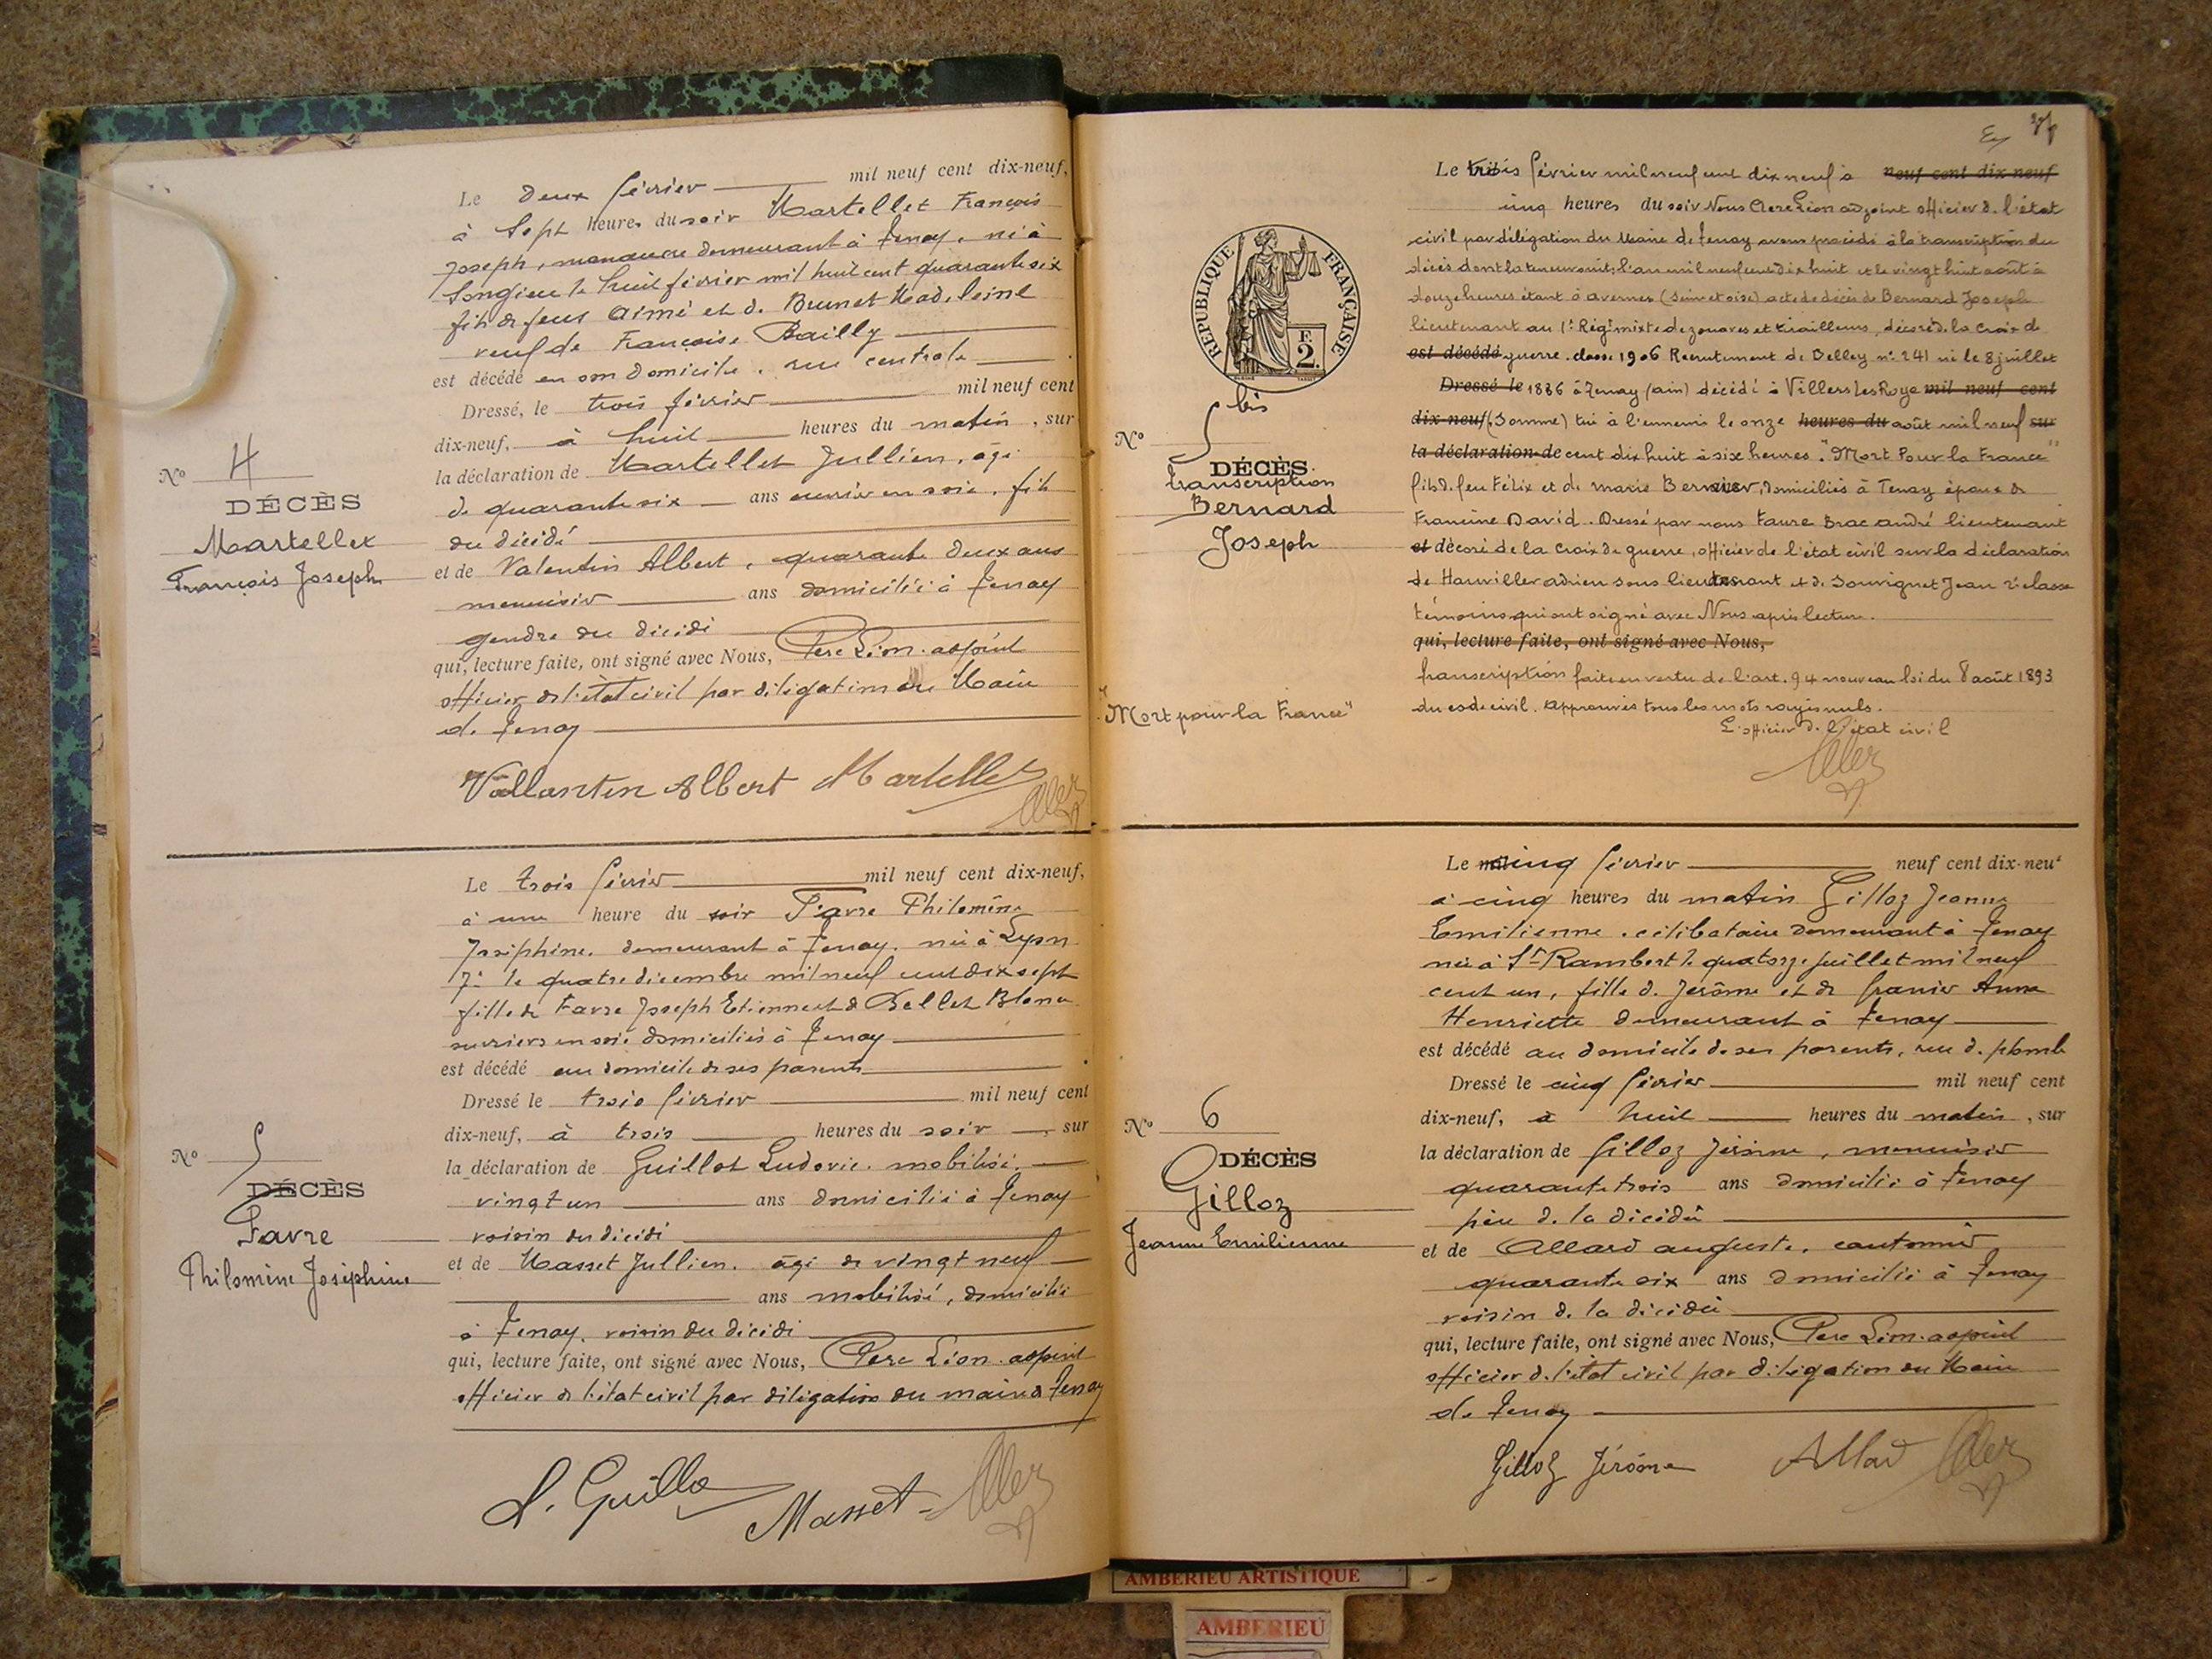 Le deux février mil neuf cent dix-neuf,
à Sept heures du soir Martellet François
Joseph, manœuvre demeurant à Tenay, né à
Songieu le huit février mil huit cent quarante six
fils de feus Aimé et de Brunet Madeleine
veuf de Françoise Bailly
est décédé en son domicile, rue centrale
Dressé, le trois février mil neuf cent
dix-neuf, à huit heures du matin, sur
la déclaration de Martellet Jullien, âgé
de quarante six ans ouvrier en soie, fils
du décédé
et de Valentin Albert, quarante deux ans
menuisier ans domicilié à Tenay
gendre du décédé
qui, lecture faite, ont signé avec Nous, Pere Léon adjoint
officier de l'état civil par délégation du Maire
de Tenay
Vallantin Albert Martellet
N° 4
DÉCÈS
Martellet
François Joseph
Le trois février mil neuf cent dix-neuf,
à une heure du soir Favre Philomène
Joséphine, demeurant à Tenay, née à Lyon
7e le quatre décembre mil neuf cent dix sept
fille de Favre Joseph Etienne et de Bellet Blanc
ouvriers en soie domiciliés à Tenay
est décédé au domicile de ses parents
Dressé le trois février mil neuf cent
dix-neuf, à trois heures du soir, sur
la déclaration de Guillot Ludovic, mobilisé,
vingt un ans domicilié à Tenay
voisin du décédé
et de Masset Jullien, âgé de vingt neuf
ans mobilisé, domicilié
à Tenay, voisin du décédé
qui, lecture faite, ont signé avec Nous, Pere Léon adjoint
officier de l'état civil par délégation du maire de Tenay
L. Guillo Masset
N° 5
DÉCÈS
Favre
Philomène Joséphine
Le trois février mil neuf cent dix neuf à neuf cent dix-neuf
cinq heures du soir Nous Pere Léon adjoint officier de l'état
civil par délégation du Maire de Tenay avons procédé à la transcription du
décès dont la teneur suit: l'an mil neuf cent dix huit et le vingt huit août à
douze heures étant à Avernes (Seine et oise) acte de décès de Bernard Joseph
lieutenant au 1er Régt mixte de zouaves et tirailleurs, décoré de la Croix de
est décédé guerre, classe 1906 Recrutement de Belley n° 241 né le 8 juillet
Dressé le 1886 à Tenay (ain) décédé à Villers Les Roye mil neuf cent
dix-neuf (Somme) tué à l'ennemi le onze heures du août mil neuf sur
la déclaration de cent dix huit à six heures. "Mort Pour la France"
fils de feu Félix et de Marie Bernier, domiciliés à Tenay époux de
Francine David. Dressé par nous Faure Brac André lieutenant
et décoré de la Croix de guerre, officier de l'état civil sur la déclaration
de Hauviller adrien sous lieutenant et de Souvignet Jean 2e classe
témoins qui ont signé avec Nous après lecture.
qui, lecture faite, ont signé avec Nous,
transcription faite en vertu de l'art. 94 nouveau loi du 8 août 1893
du code civil. Approuvés tous les mots rayés nuls.
L'officier de l'état civil
REPUBLIQUE FRANÇAISE
F.
2.
N° 5 bis
DÉCÈS.
transcription
Bernard
Joseph
"Mort pour la France"
Le cinq février neuf cent dix-neuf
à cinq heures du matin Gilloz Jeanne
Emilienne, célibataire demeurant à Tenay
née à St Rambert le quatorze juillet mil neuf
cent un, fille de Jérôme et de Granier Anna
Henriette demeurant à Tenay
est décédé au domicile de ses parents, rue de plomb
Dressé le cinq février mil neuf cent
dix-neuf, à huit heures du matin, sur
la déclaration de Gilloz Jérôme, menuisier
quarante trois ans domicilié à Tenay
père de la décédée
et de Allard auguste, cantonnier
quarante six ans domicilié à Tenay
voisin de la décédée
qui, lecture faite, ont signé avec Nous, Pere Léon adjoint
officier de l'état civil par délégation du Maire
de Tenay
Gilloz Jérôme Allard
N° 6
DÉCÈS
Gilloz
Jeanne Emilienne
AMBERIEU ARTISTIQUE
AMBERIEU